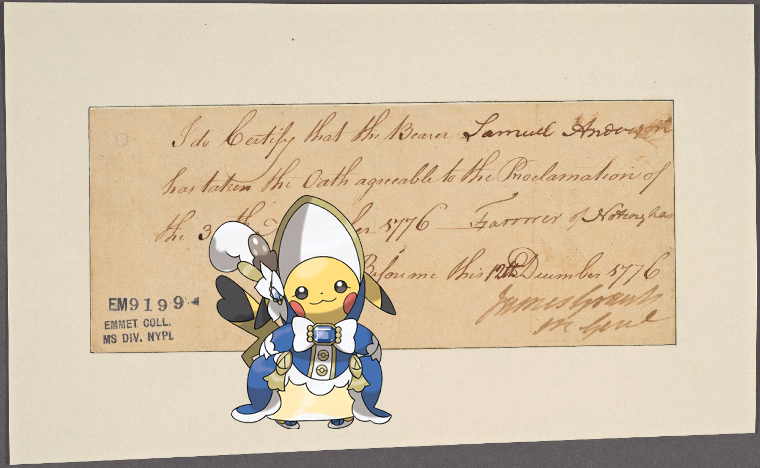 I do Certify that the Bearer Samuel Anderson
has taken the Oath agreeable to the Proclamation of
the 1776 — Farmer of Notingham
Before me this 12th December 1776
James Grant
M Genl
EM9199
EMMET COLL.
MS DIV. NYPL